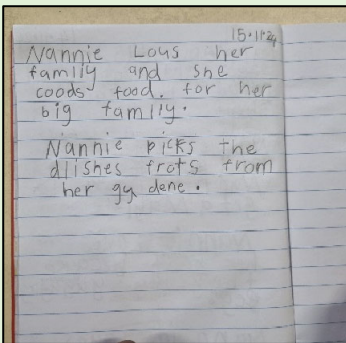 15.11.24
Nannie Lous her
family and she
coods food. for her
big family.
Nannie picks the
dlishes frots from
her gy dene.